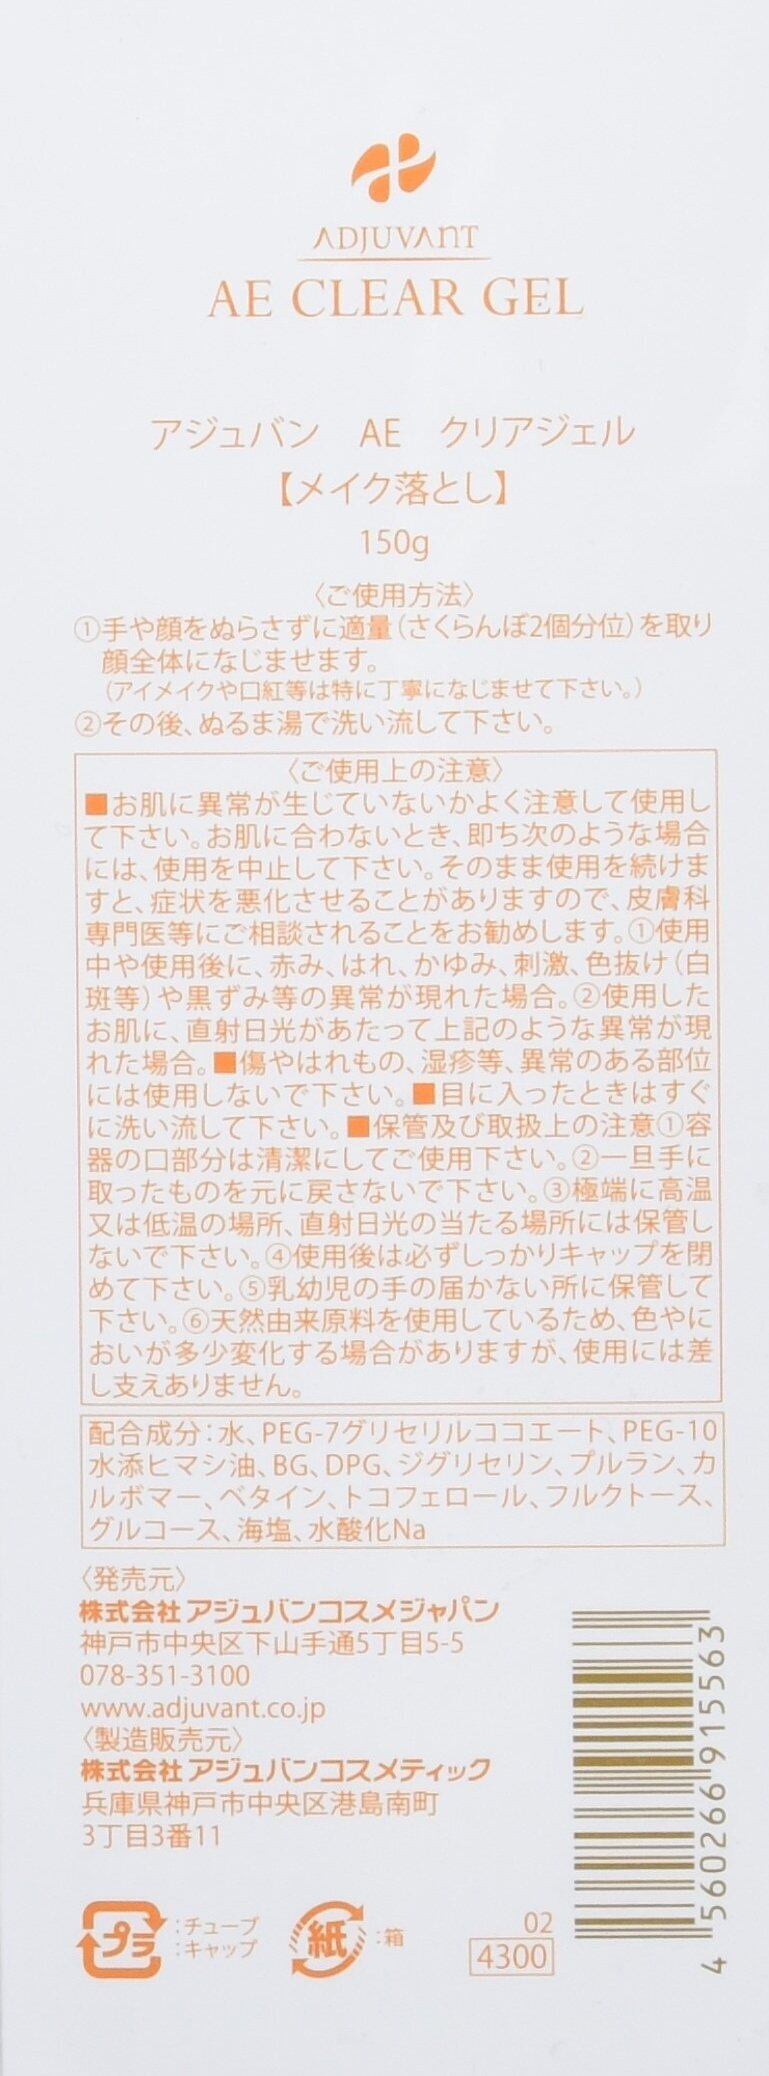 ADJUVANT
AE CLEAR GEL
アジュバン　AE　クリアジェル
【メイク落とし】
150g
〈ご使用方法〉
①手や顔をぬらさずに適量(さくらんぼ2個分位)を取り
顔全体になじませます。
(アイメイクや口紅等は特に丁寧になじませて下さい。)
②その後、ぬるま湯で洗い流して下さい。
〈ご使用上の注意〉
■お肌に異常が生じていないかよく注意して使用し
て下さい。お肌に合わないとき、即ち次のような場合
には、使用を中止して下さい。そのまま使用を続けま
すと、症状を悪化させることがありますので、皮膚科
専門医等にご相談されることをお勧めします。①使用
中や使用後に、赤み、はれ、かゆみ、刺激、色抜け(白
斑等)や黒ずみ等の異常が現れた場合。②使用した
お肌に、直射日光があたって上記のような異常が現
れた場合。■傷やはれもの、湿疹等、異常のある部位
には使用しないで下さい。■目に入ったときはすぐ
に洗い流して下さい。■保管及び取扱上の注意①容
器の口部分は清潔にしてご使用下さい。②一旦手に
取ったものを元に戻さないで下さい。③極端に高温
又は低温の場所、直射日光の当たる場所には保管し
ないで下さい。④使用後は必ずしっかりキャップを閉
めて下さい。⑤乳幼児の手の届かない所に保管して
下さい。⑥天然由来原料を使用しているため、色やに
おいが多少変化する場合がありますが、使用には差
し支えありません。
配合成分：水、PEG-7グリセリルココエート、PEG-10
水添ヒマシ油、BG、DPG、ジグリセリン、プルラン、カ
ルボマー、ベタイン、トコフェロール、フルクトース、
グルコース、海塩、水酸化Na
〈発売元〉
株式会社アジュバンコスメジャパン
神戸市中央区下山手通5丁目5-5
078-351-3100
www.adjuvant.co.jp
〈製造販売元〉
株式会社アジュバンコスメティック
兵庫県神戸市中央区港島南町
3丁目3番11
4 560266 915563
プラ
：チューブ
：キャップ
紙
：箱
02
4300